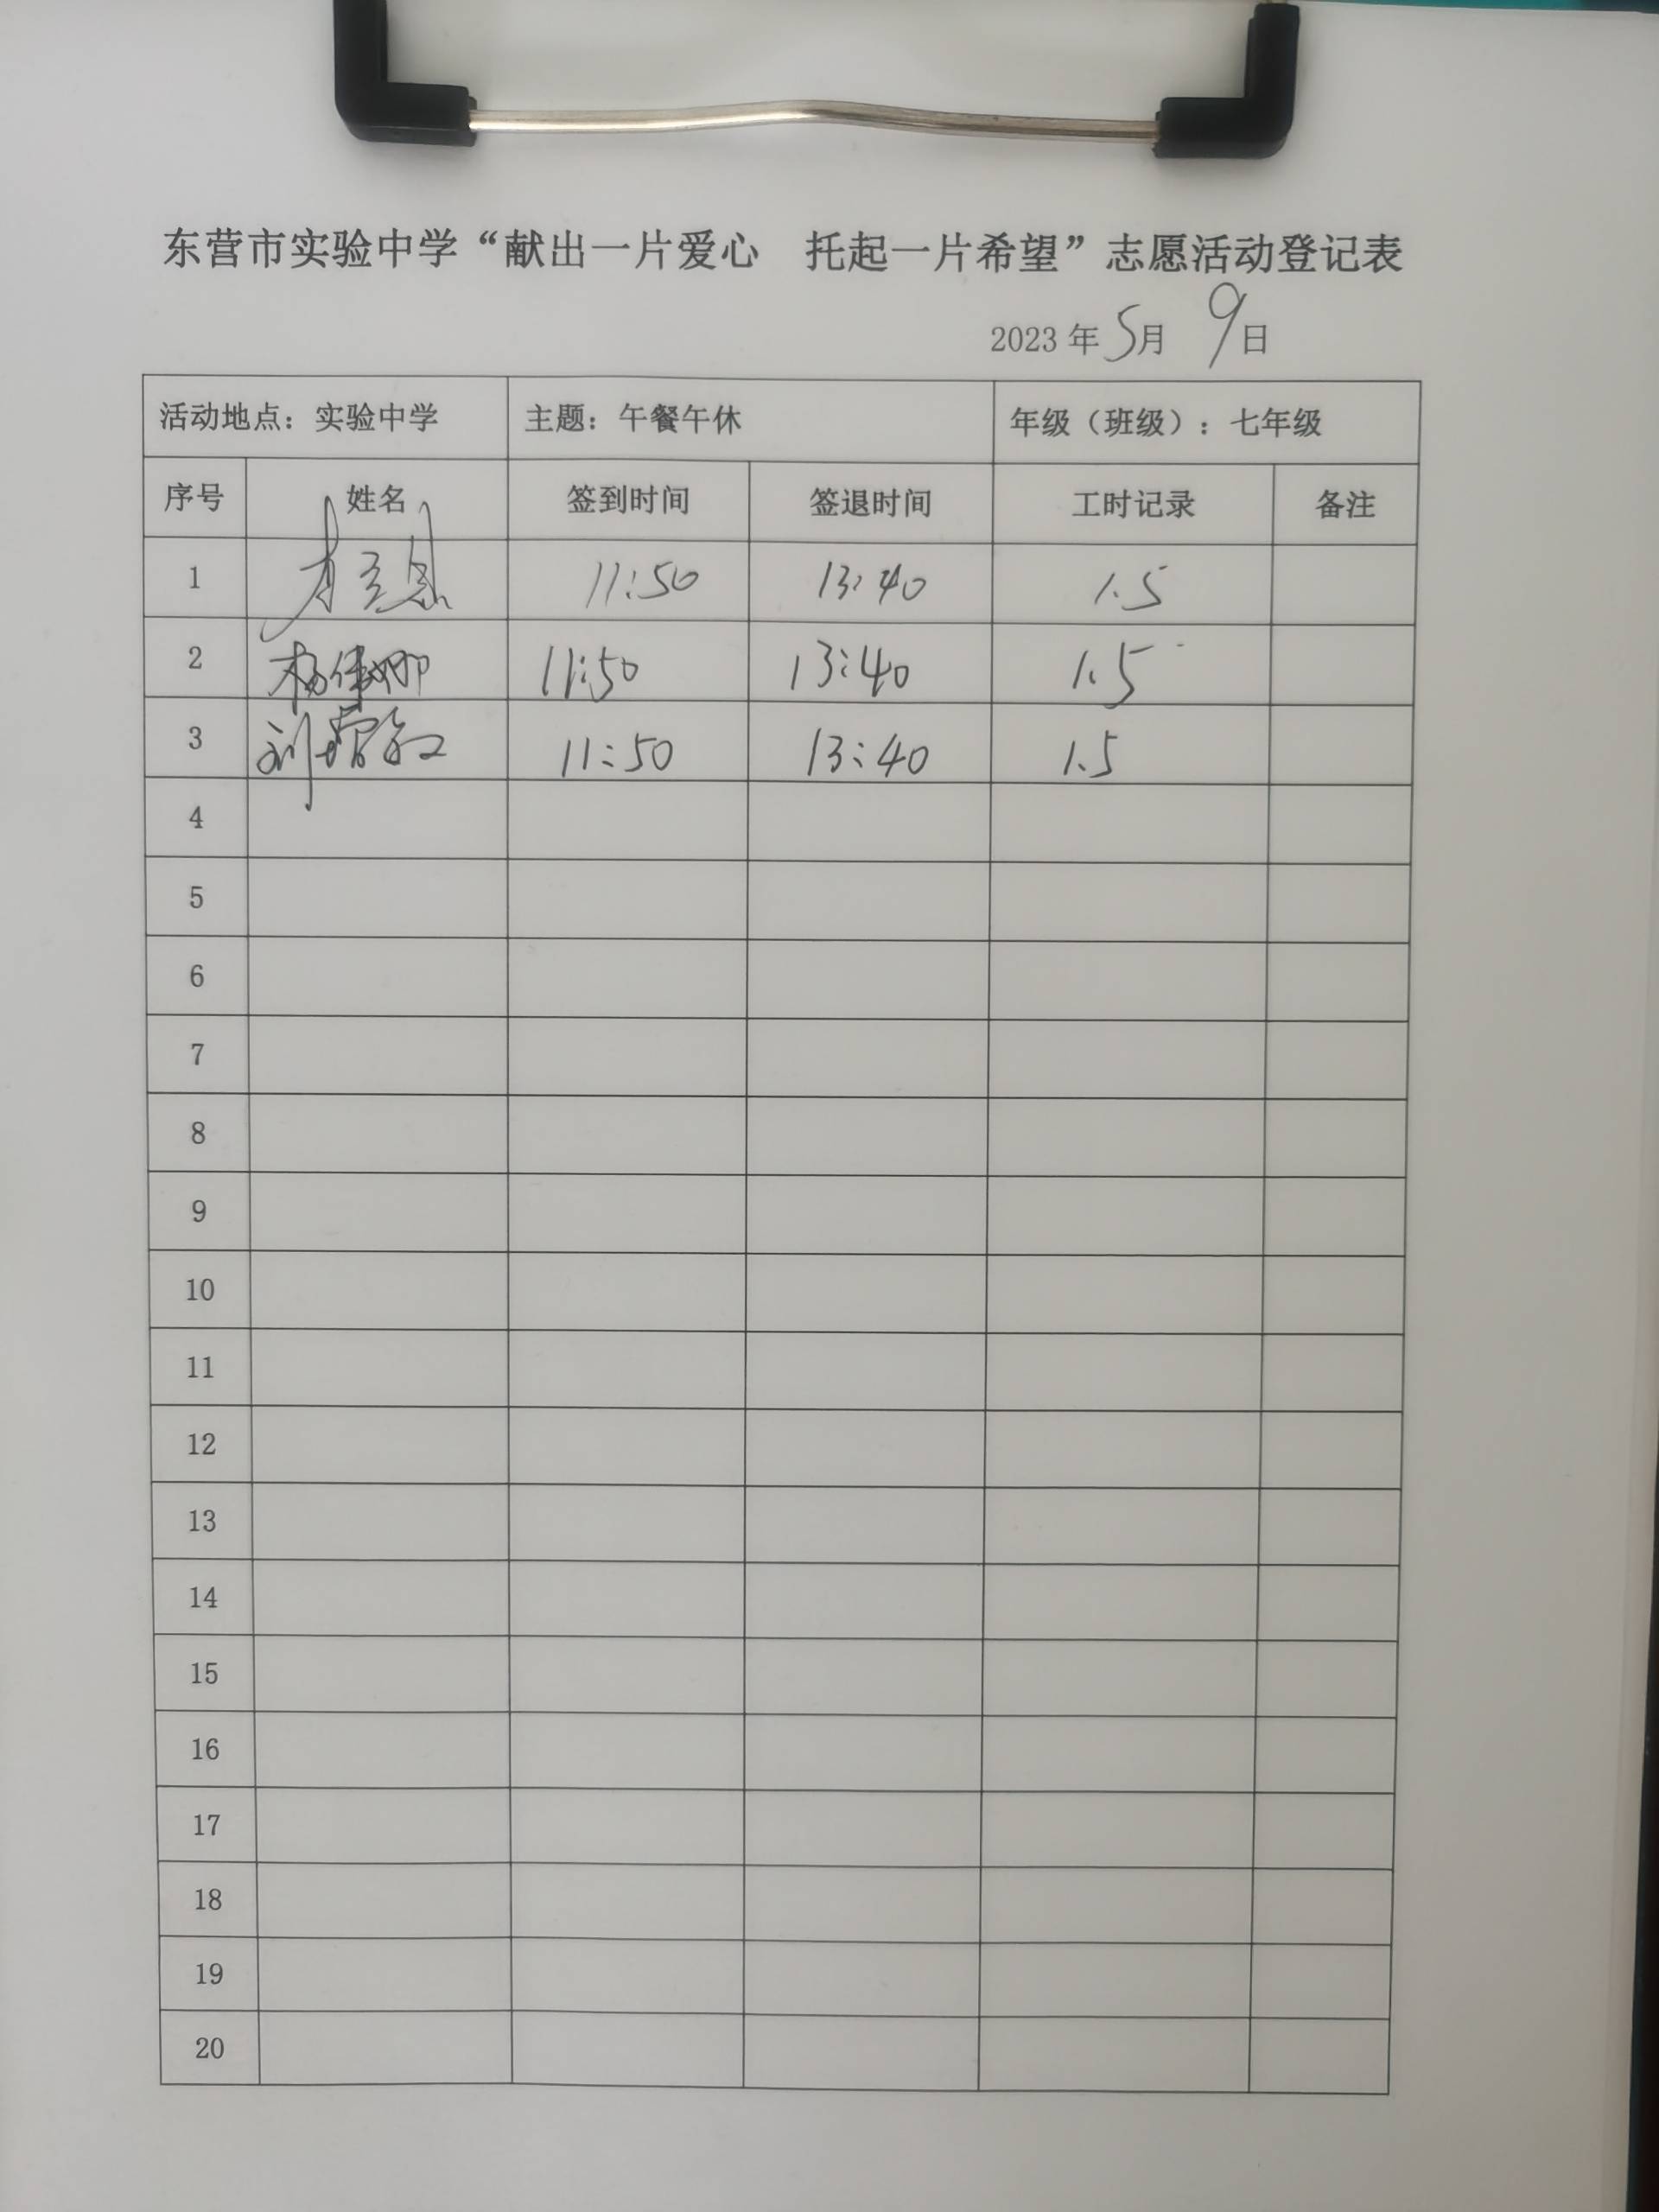 东营市实验中学“献出一片爱心 托起一片希望”志愿活动登记表
2023年5月 9日
活动地点：实验中学 主题：午餐午休 年级（班级）：七年级
序号 姓名 签到时间 签退时间 工时记录 备注
1 11:50 13:40 1.5
2 杨 娜 11:50 13:40 1.5
3 刘 11:50 13:40 1.5
4
5
6
7
8
9
10
11
12
13
14
15
16
17
18
19
20